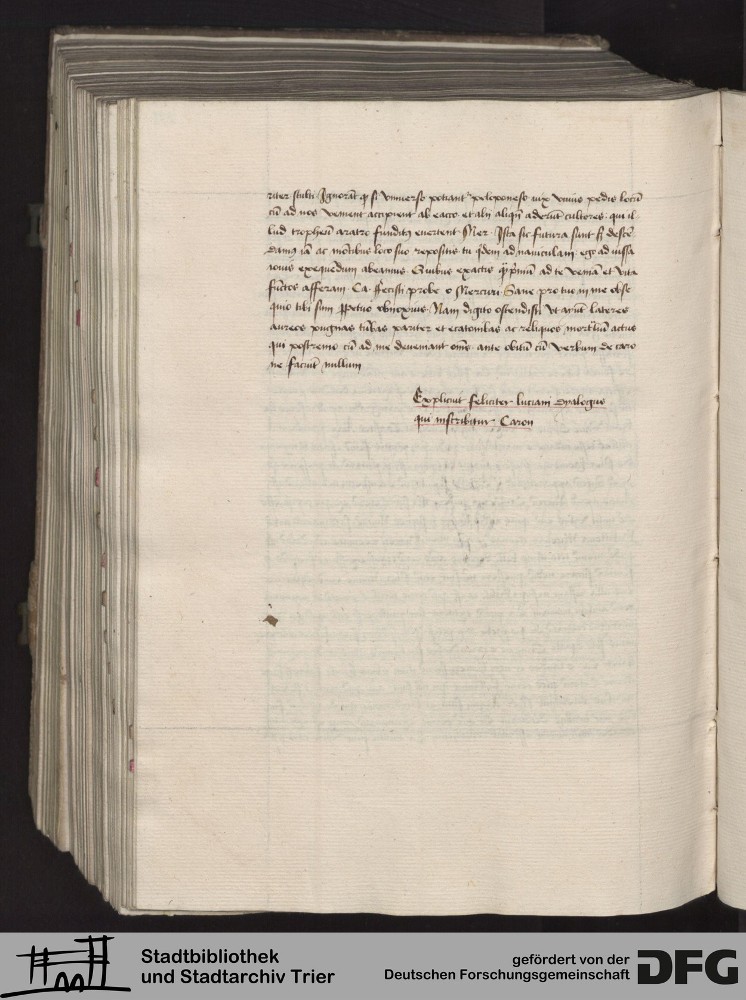 riter stulti Ignorāt q si vniuerso potiant peloponeso vix vnius pedis locū
cū ad nos venient accipient ab eaco et alij aliqñ aderūt cultores qui il
lud tropheū aratro funditꝰ euertent Mer Ista sic futura sunt descē
damꝰ iā ac mōtibus loco suo repositis tu qdem ad nauiculam ego ad iussa
iouis exequēdum abeamus Quibus exactis ad te veniā et vita
fūctos afferam Ca ffecisti probe o Mercuri Sane pro tuo in me obse
quio tibi sim ꝑpetuo obnoxius Nam digito ostendisti vt arūt lateres
aureos pugnas pariter et ecatombas ac reliquos mortaliū actus
qui postremo cū ad me deueniant oms ante obitū cū verbum de caro
ne faciūt nullum
Explicīut feliciter luciani dyalogus
qui inscribitur Caron
Stadtbibliothek
und Stadtarchiv Trier
gefördert von der
Deutschen Forschungsgemeinschaft
DFG